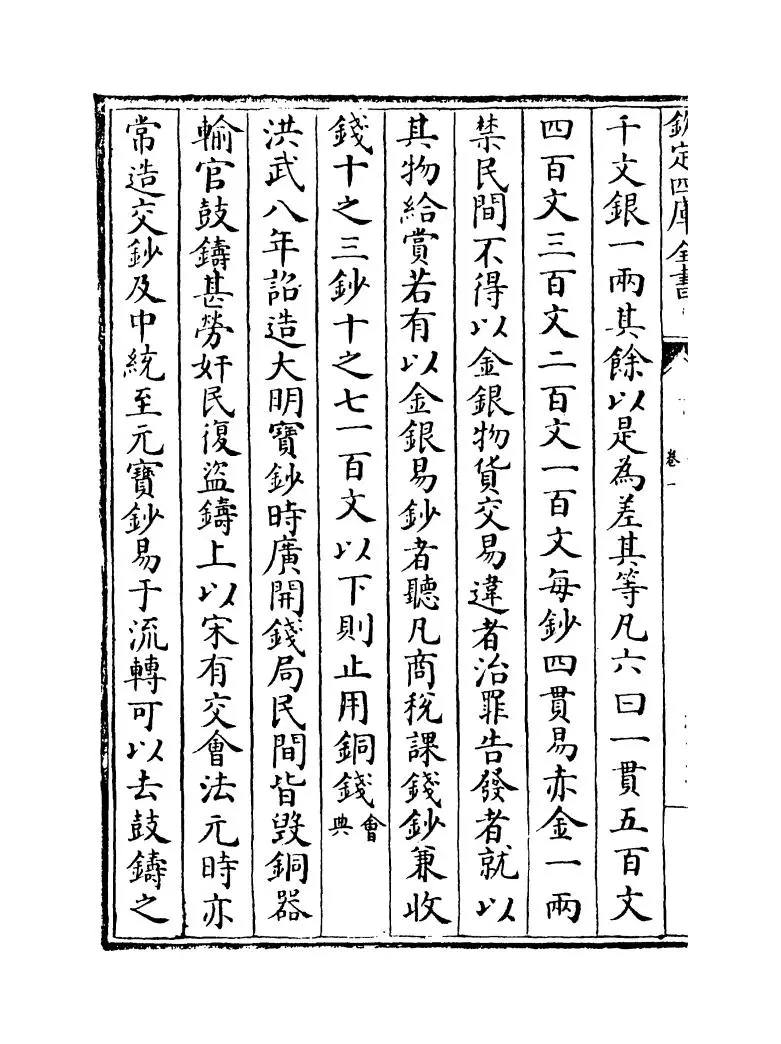 欽定四庫全書
卷一
千文銀一兩其餘以是為差其等凡六曰一貫五百文
四百文三百文二百文一百文每鈔四貫易赤金一兩
禁民間不得以金銀物貨交易違者治罪告發者就以
其物給賞若有以金銀易鈔者聽凡商稅課錢鈔兼收
錢十之三鈔十之七一百文以下則止用銅錢會典
洪武八年詔造大明寶鈔時廣開錢局民間皆毀銅器
輸官鼓鑄甚勞奸民復盜鑄上以宋有交會法元時亦
常造交鈔及中統至元寶鈔易于流轉可以去鼓鑄之